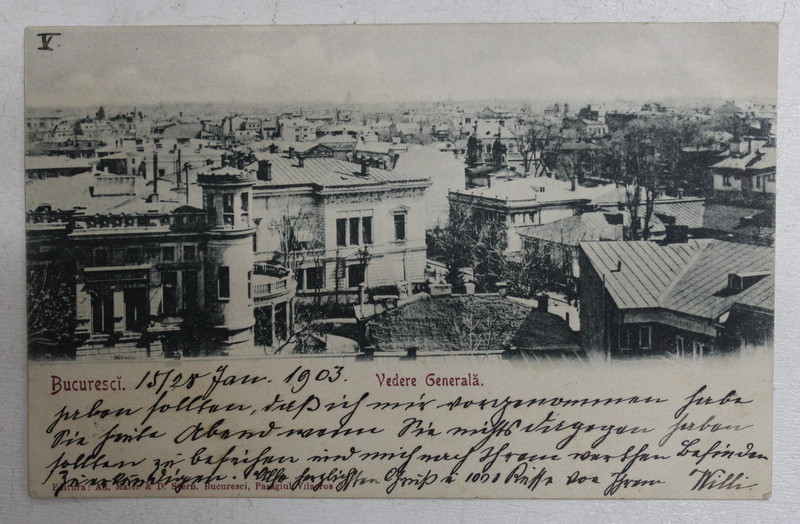 V
Bucurescĭ. 15/28 Jan. 1903. Vedere Generală.
haben sollten, daß ich mir vorgenommen habe
Sie heute Abend wenn Sie nichts dagegen haben
sollten zu besuchen und mich nach Ihrem werthen Befinden
zu erkundigen. Alle herzlichsten Grüße u 1000 Küsse von Ihrem Willi.
Editura: Ad. Maier & D. Stern. Bucuresci, Pasagiul Vilacros